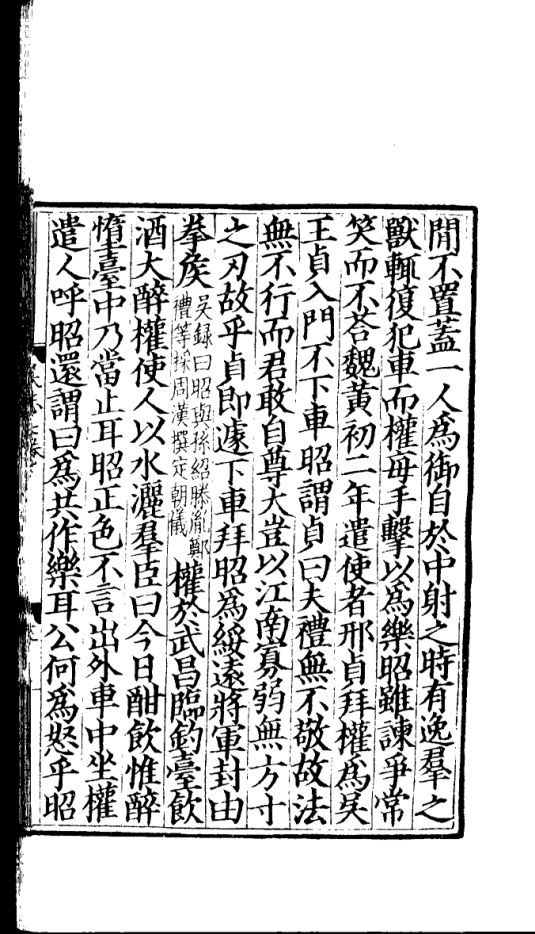 閒不置蓋一人爲御自於中射之時有逸羣之
獸輒復犯車而權每手擊以爲樂昭雖諫爭常
笑而不荅魏黃初二年遣使者邢貞拜權爲吳
王貞入門不下車昭謂貞曰夫禮無不敬故法
無不行而君敢自尊大豈以江南寡弱無方寸
之刃故乎貞即遽下車拜昭爲綏遠將軍封由
拳矦
吳録曰昭與孫紹滕胤鄭
禮等採周漢撰定朝儀
權於武昌臨釣臺飲
酒大醉權使人以水灑羣臣曰今日酣飲惟醉
墮臺中乃當止耳昭正色不言出外車中坐權
遣人呼昭還謂曰爲共作樂耳公何爲怒乎昭